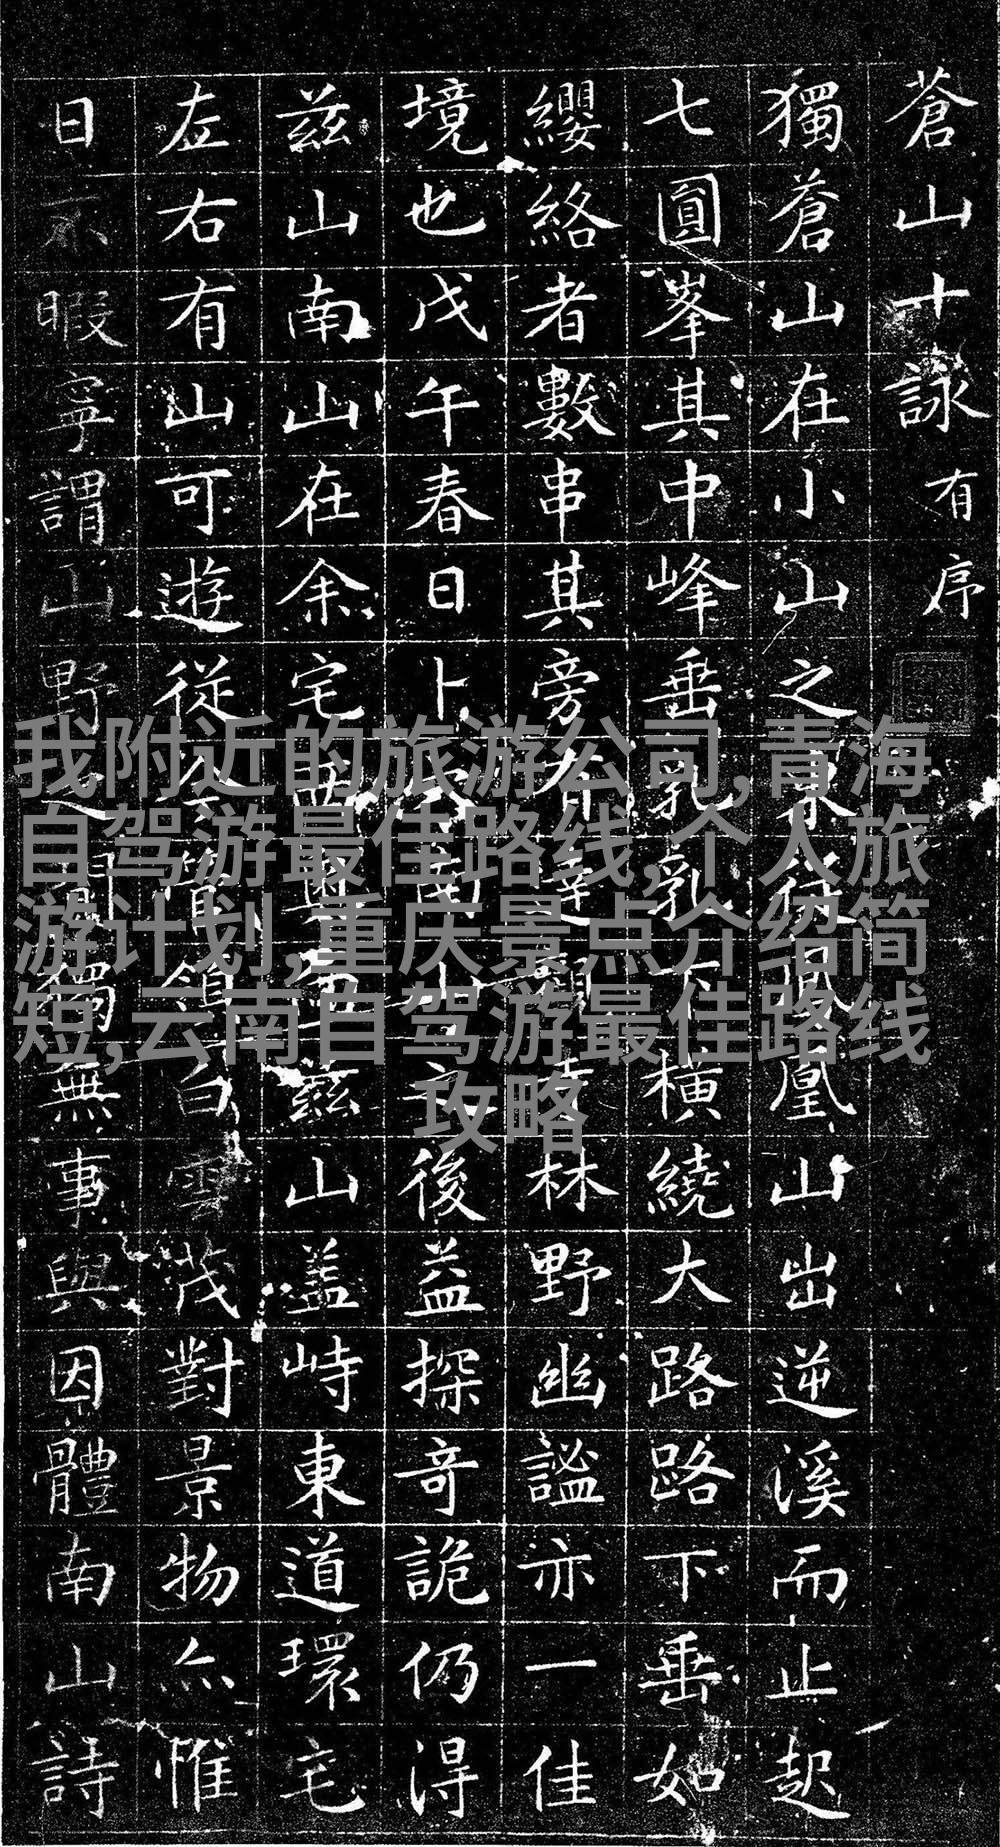 蒼山十詠 有序
獨蒼山在小山之東鳳凰山出逆溪而止起
七圓峯其中峰垂乳乳下横繞大路路下垂如
纓絡者數串其旁林野幽謐亦一佳
境也戊午春日卜後益探奇詭仍得
兹山南山在余宅西兹山盖峙東道環宅
左右有山可遊從領白雲茂對景物亦惟
日不暇寧謂山野之獨無事與因體南山詩
我附近的旅游公司,青海
自驾游最佳路线,个人旅
游计划,重庆景点介绍简
短,云南自驾游最佳路线
攻略